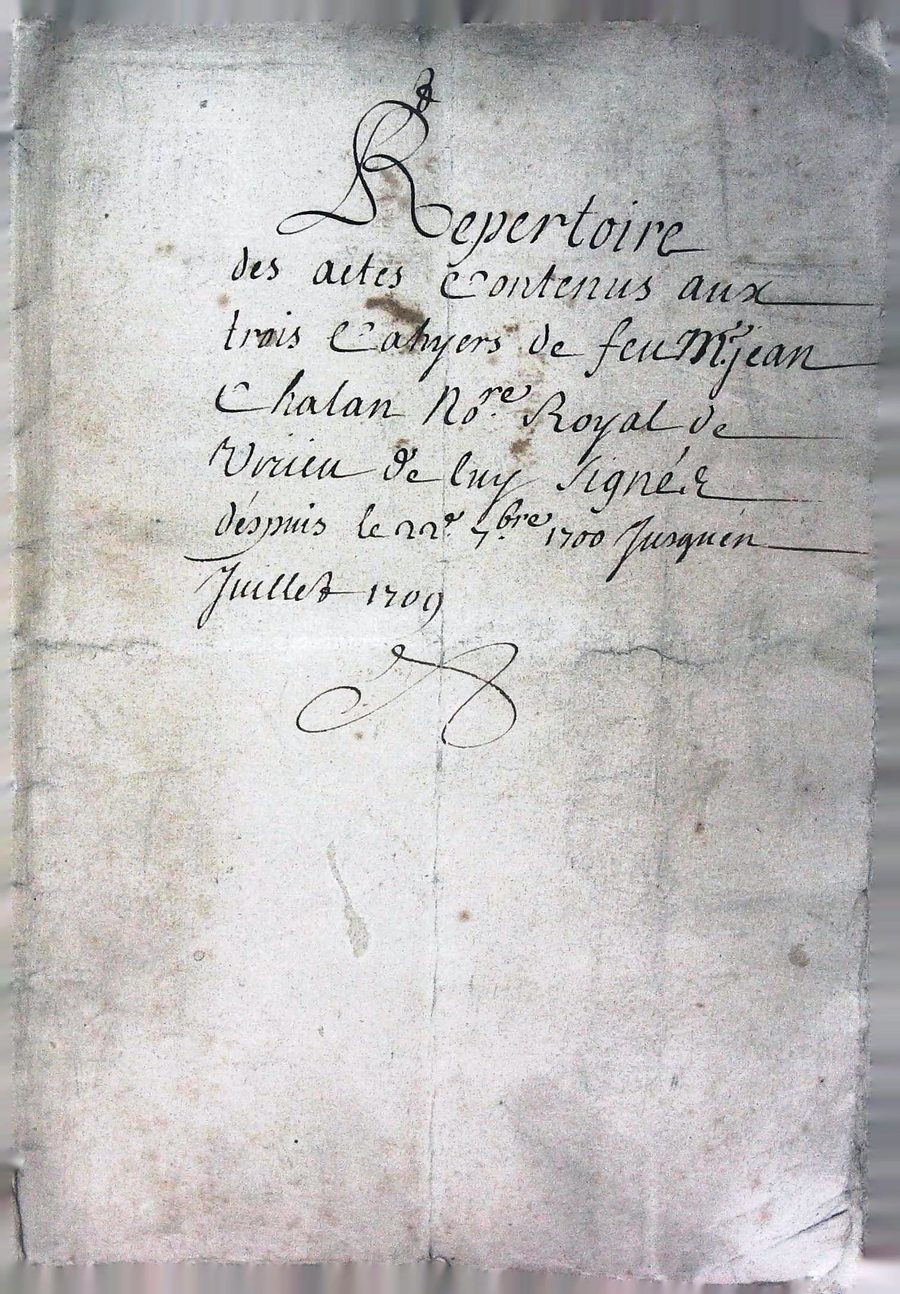 Repertoire
des actes Contenus aux
trois Cahyers de feu Mre jean
Chalan Nore Royal de
Virieu de luy signéz
déspuis le 22e 7bre 1700 Jusquén
Juillet 1709